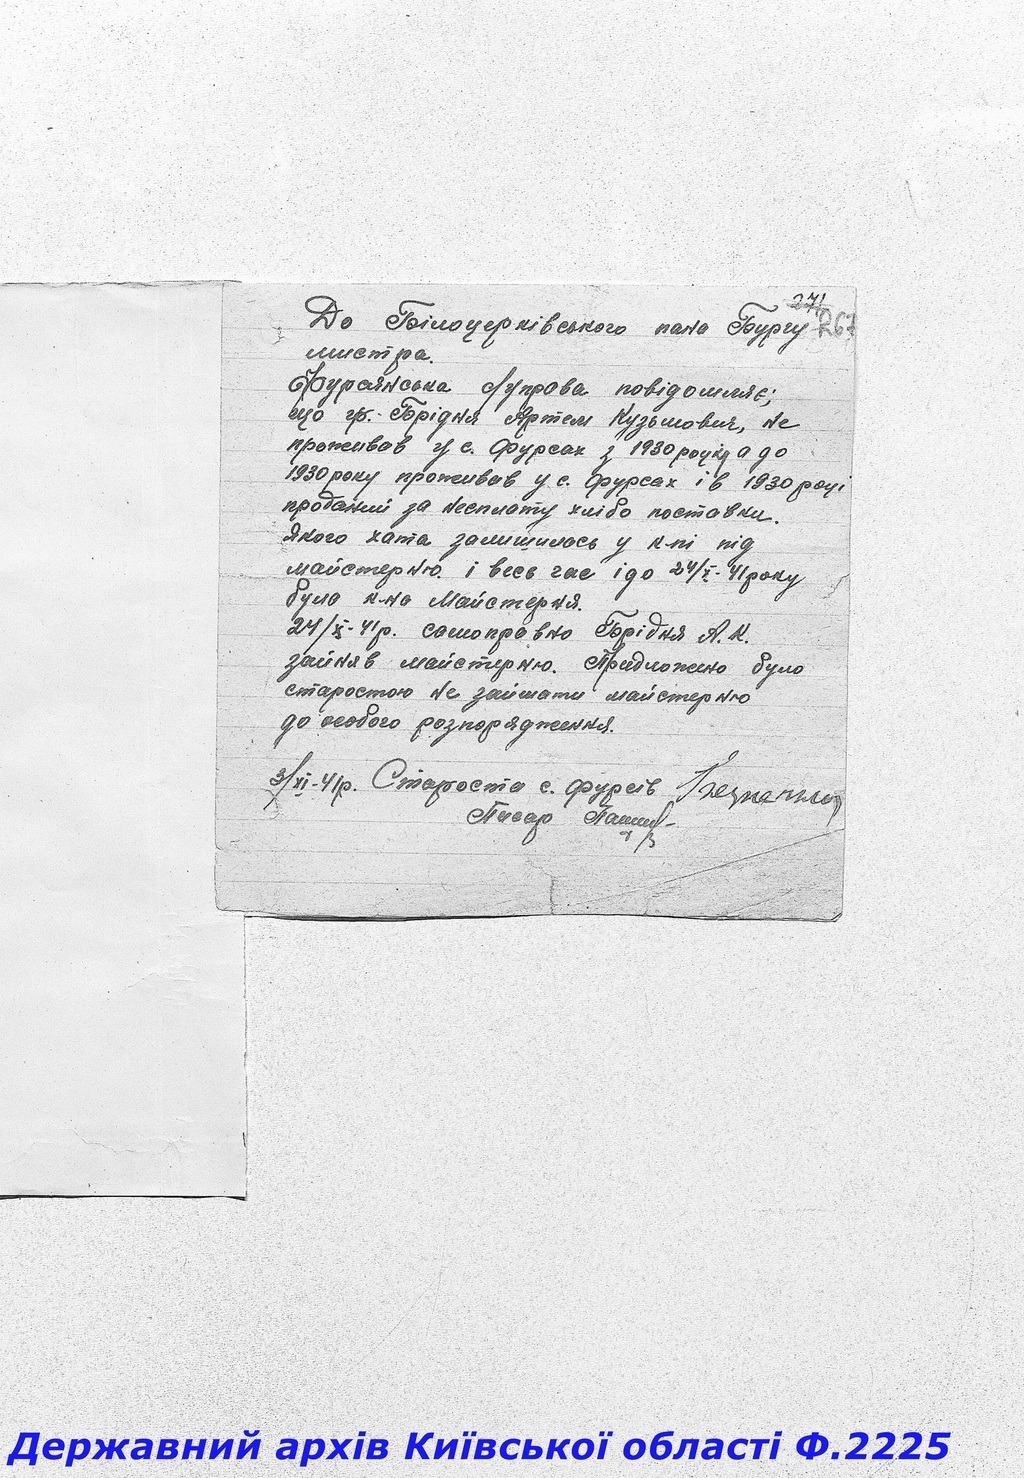 271
267
До Білоцерківського пана Бургу
мистра.
Фурсянська управа повідомляє;
що гр. Брідня Артем Кузьмович, не
проживав у с. Фурсах з 1930 року а до
1930 року проживав у с. Фурсах і в 1930 році
проданий за несплату хлібо поставки.
Якого хата залишилась у к-пі під
майстерню. і весь час і до 24/X-41 року
була к-на Майстерня.
24/X-41р. самоправно Брідня А. К.
зайняв майстерню. Придложено було
старостою не займати майстерню
до особого розпорядження.
3/XI-41р. Староста с. Фурсів
Писар
Державний архів Київської області Ф.2225